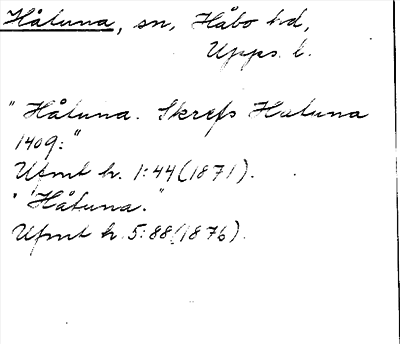 Håtuna, sn, Håbo hd,
Upps. l.
"Håtuna. Skrefs Hatuna
1409:"
Ufmt h. 1:44 (1871).
"Håtuna."
Ufmt h. 5:88 (1876).